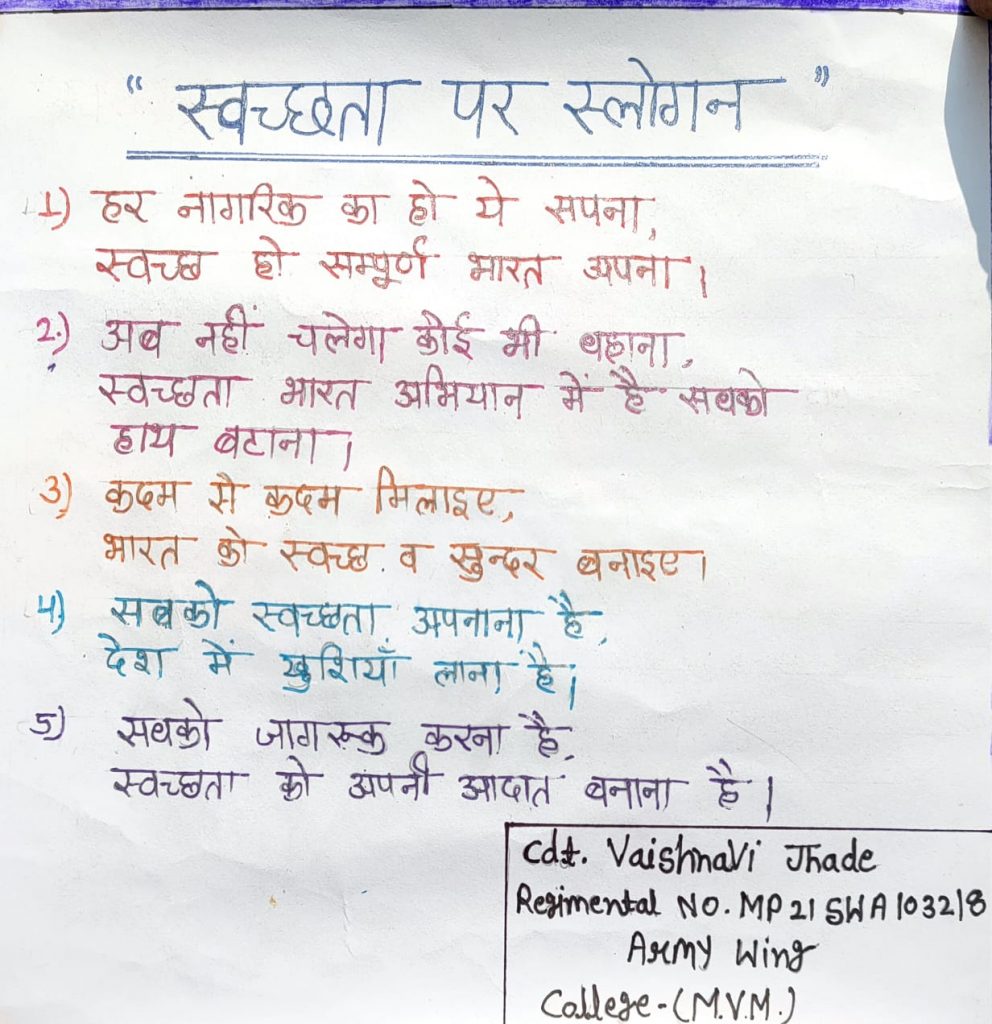 “ स्वच्छता पर स्लोगन ”
1) हर नागरिक का हो ये सपना,
स्वच्छ हो सम्पूर्ण भारत अपना।
2.) अब नहीं चलेगा कोई भी बहाना,
स्वच्छता भारत अभियान में है सबको
हाथ बटाना।
3) कदम से कदम मिलाइए,
भारत को स्वच्छ व सुन्दर बनाइए।
4) सबको स्वच्छता अपनाना है,
देश में खुशियाँ लाना है।
5) सबको जागरूक करना है,
स्वच्छता को अपनी आदात बनाना है।
Cdt. Vaishnavi Jhade
Regimental NO. MP21SWA103218
Army Wing
College-(M.V.M.)